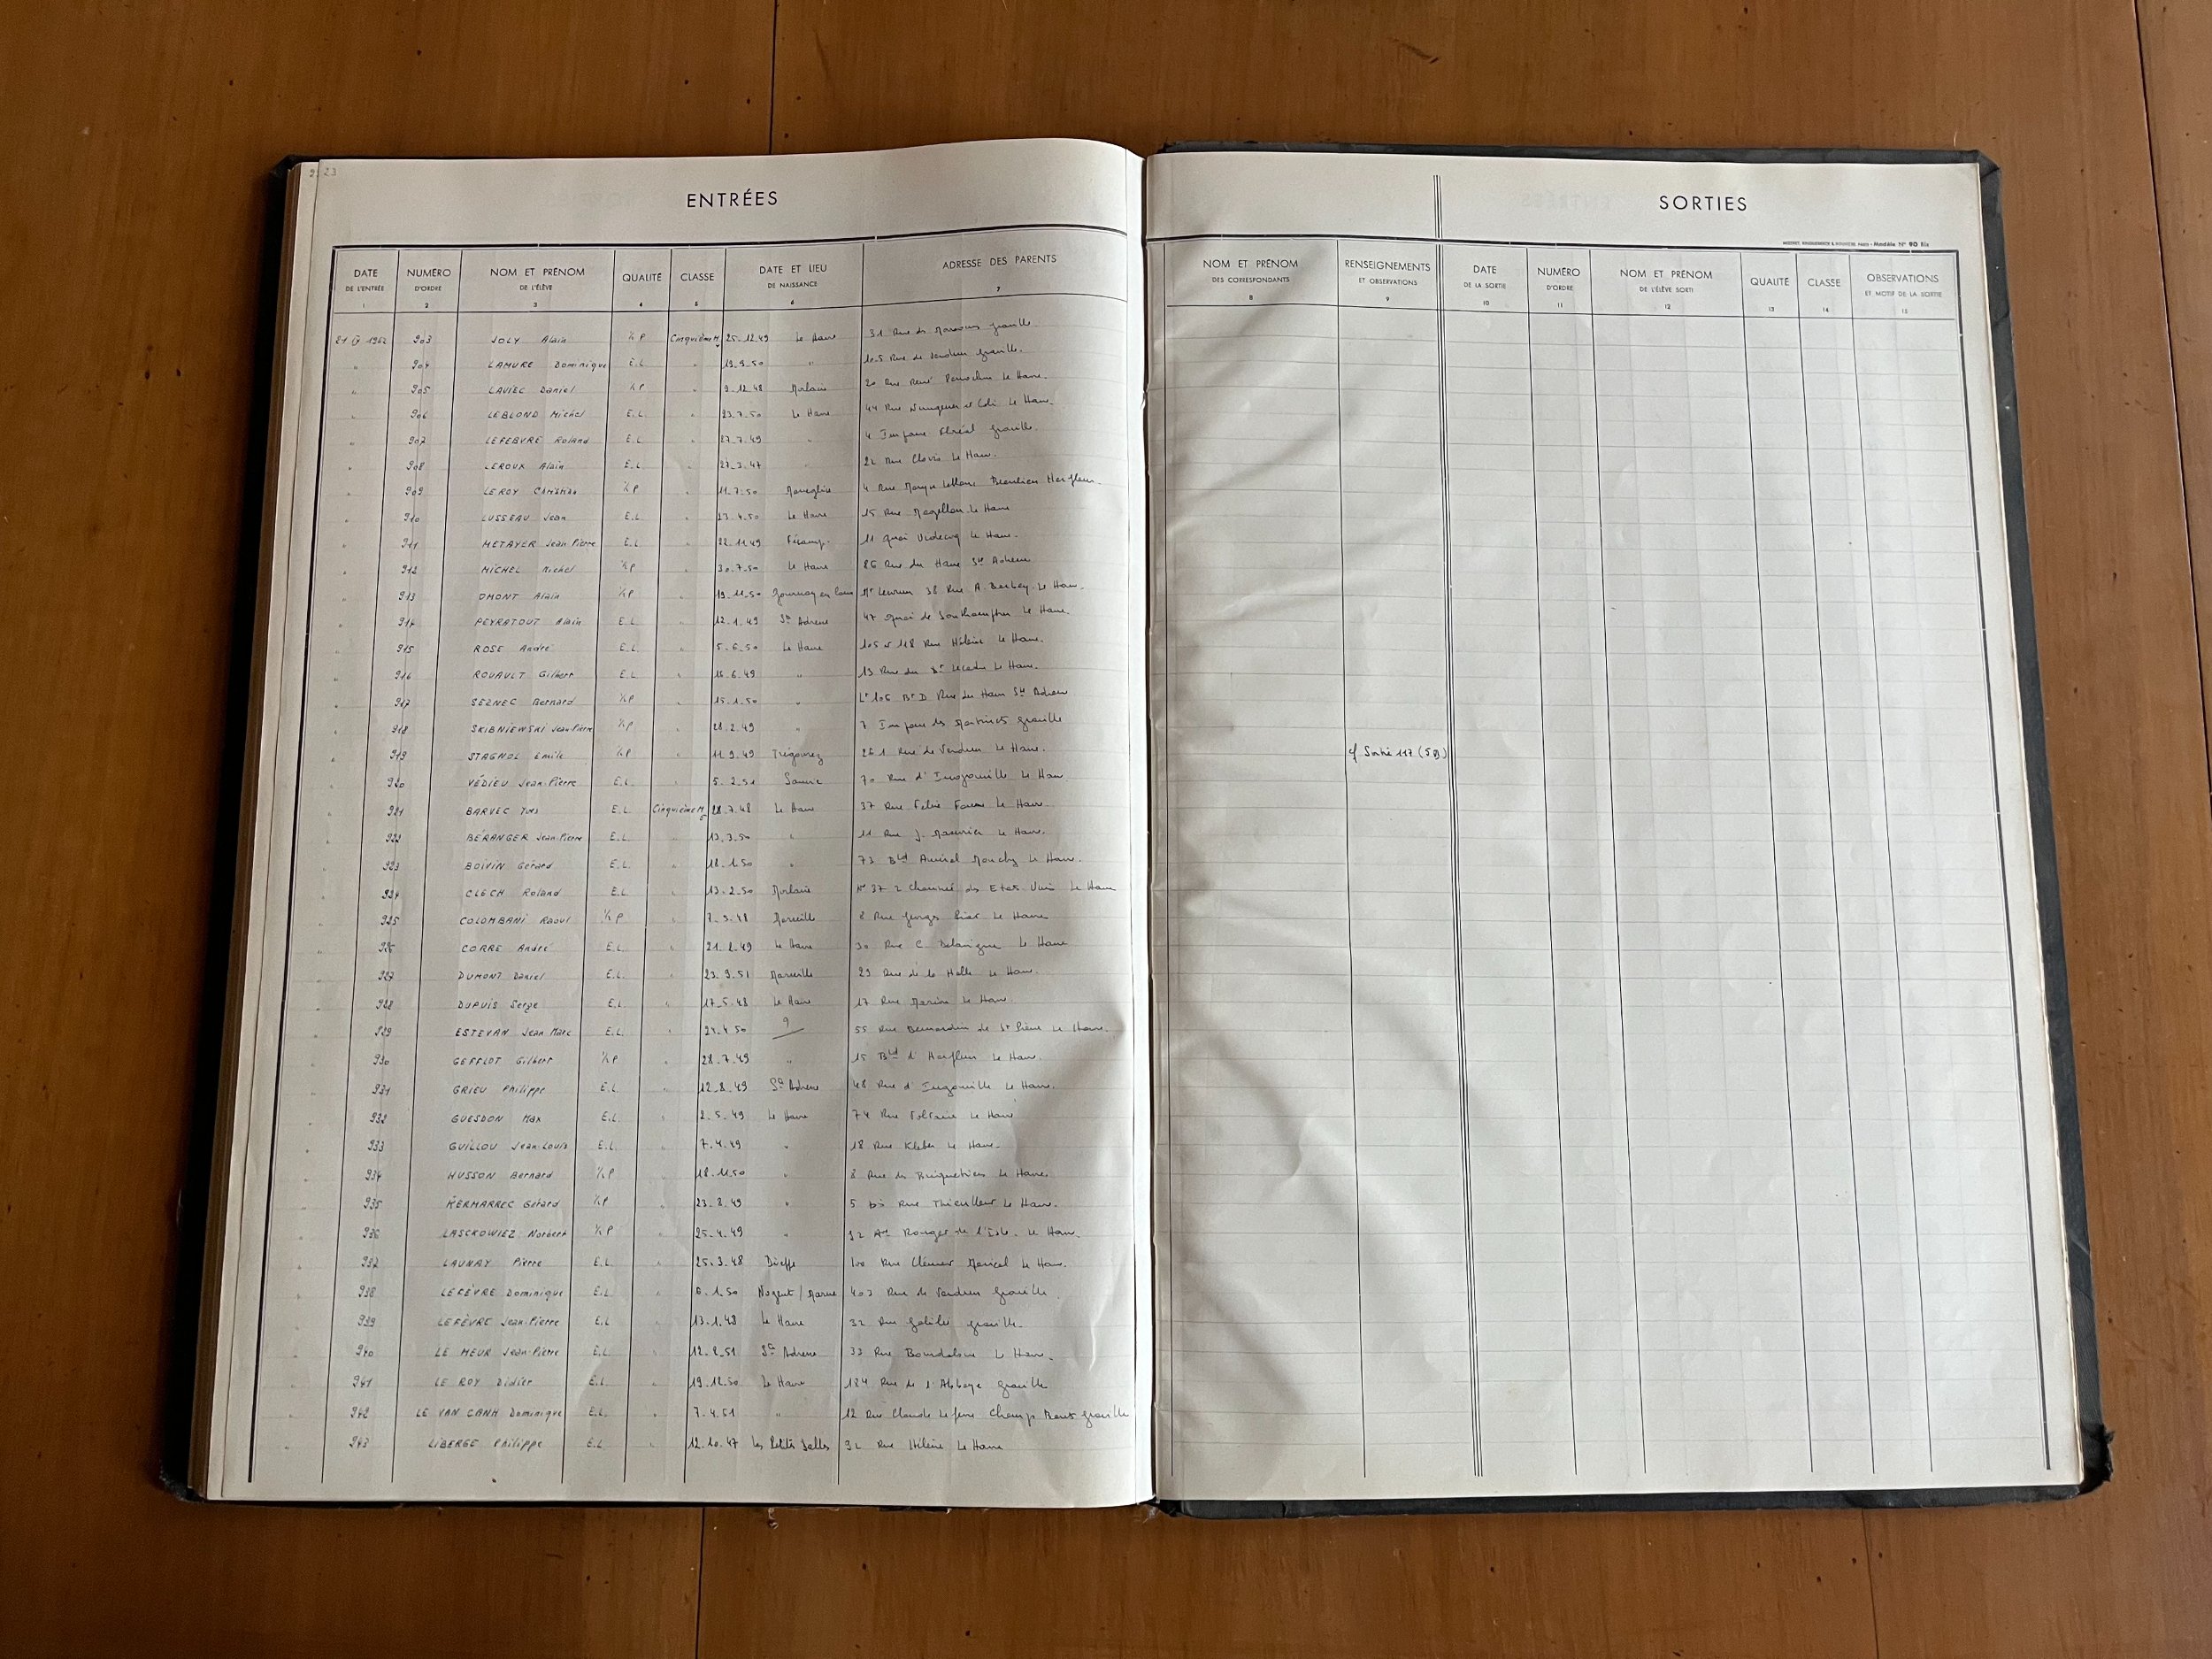 23
ENTRÉES
DATE DE L'ENTRÉE 1 NUMÉRO D'ORDRE 2 NOM ET PRÉNOM DE L'ÉLÈVE 3 QUALITÉ 4 CLASSE 5 DATE ET LIEU DE NAISSANCE 6 ADRESSE DES PARENTS 7
1962 903 JOLY Alain ½ P Cinquième M 25.12.49 Le Havre 31 Rue des Graville
" 904 LAMURE Dominique E.L " 19.9.50 " 105 Rue de Verdun Graville.
" 905 LAVIEC Daniel ½ P " 9.12.48 Morlaix 20 Rue René Le Havre.
" 906 LEBLOND Michel E.L. " 23.7.50 Le Havre 44 Rue Nungesser et Coli Le Havre.
" 907 LEFEBVRE Roland E.L " 27.7.49 " 4 Impasse Floréal Graville.
" 908 LEROUX Alain E.L " 27.3.47 " 22 Rue Clovis Le Havre.
" 909 LEROY Christian ½ P " 11.7.50 4 Rue Beaulieu Harfleur.
" 910 LUSSEAU Jean E.L " 23.4.50 Le Havre 15 Rue Magellan Le Havre
" 911 METAYER Jean-Pierre E.L " 22.11.49 Fécamp. 11 Quai Videcoq Le Havre.
" 912 MICHEL Michel ½ P " 30.7.50 Le Havre 86 Rue du Havre Ste Adresse
" 913 OMONT Alain ½ P " 19.11.50 Gournay en 38 Rue A. Barbey. Le Havre.
" 914 PEYRATOUT Alain E.L " 12.1.49 Ste Adresse 47 Quai de Southampton Le Havre.
" 915 ROSE André E.L " 5.6.50 Le Havre 105 et 118 Rue Hélène Le Havre.
" 916 ROUAULT Gilbert E.L " 16.6.49 " 13 Rue du Dr Lecadre Le Havre.
" 917 SEZNEC Bernard ½ P " 15.1.50 " Lt 106 Bt D Rue du Havre Ste Adresse
" 918 SKIBNIEWSKI Jean-Pierre ½ P " 28.2.49 " 7 Impasse des Graville
" 919 STAGNOL Emile ½ P " 11.9.49 Trégourez 261 Rue de Verdun Le Havre.
" 920 VÉDIEU Jean-Pierre E.L. " 5.2.51 70 Rue d'Ingouville Le Havre
" 921 BARVEC Yves E.L Cinquième M 28.7.48 Le Havre 37 Rue Félix Faure Le Havre.
" 922 BÉRANGER Jean-Pierre E.L " 13.3.50 " 11 Rue J. Masurier Le Havre.
" 923 BOIVIN Gérard E.L. " 18.1.50 " 73 Bld Amiral Mouchez Le Havre.
" 924 CLECH Roland E.L " 13.2.50 Morlaix N° 37 2 Chaussée des Etats Unis Le Havre
" 925 COLOMBANI Raoul ½ P " 7.9.48 Marseille 8 Rue Georges Le Havre
" 926 CORRE André E.L. " 21.2.49 Le Havre 30 Rue C. Delavigne Le Havre
" 927 DUMONT Daniel E.L. " 23.9.51 Marseille 29 Rue de la Halle Le Havre.
" 928 DUPUIS Serge E.L. " 17.5.48 Le Havre 17 Rue Le Havre
" 929 ESTEVAN Jean Marc E.L. " 24.4.50 ? 55 Rue Bernardin de St Pierre Le Havre.
" 930 GEFFLOT Gilbert ½ P " 28.7.49 " 15 Bld d'Harfleur Le Havre.
" 931 GRIEU Philippe E.L. " 12.8.49 Ste Adresse 48 Rue d'Ingouville Le Havre.
" 932 GUESDON Max E.L. " 2.5.49 Le Havre 74 Rue Voltaire Le Havre
" 933 GUILLOU Jean-Louis E.L. " 7.4.49 " 18 Rue Kléber Le Havre.
" 934 HUSSON Bernard ½ P " 18.11.50 " 8 Rue des Briquetiers Le Havre.
" 935 KERMARREC Gérard ½ P " 23.8.49 " 5 bis Rue Thieullent Le Havre.
" 936 LASCKOWIEZ Norbert ½ P " 25.4.49 " 92 Av Rouget de l'Isle. Le Havre.
" 937 LAUNAY Pierre E.L. " 25.3.48 Dieppe 100 Rue Clément Marical Le Havre.
" 938 LEFÈVRE Dominique E.L. " 8.1.50 Nogent / Marne 403 Rue de Verdun Graville.
" 939 LEFÈVRE Jean-Pierre E.L " 13.1.49 Le Havre 32 Rue Galilée Graville.
" 940 LE MEUR Jean-Pierre E.L. " 12.8.51 Ste Adresse 33 Rue Bourdaloue Le Havre.
" 941 LE ROY Didier E.L. " 19.12.50 Le Havre 184 Rue de l'Abbaye Graville
" 942 LE VAN CANH Dominique E.L. " 7.4.51 " 12 Rue Claude Champs Barets Graville
" 943 LIBERGE Philippe E.L. " 12.10.47 Les Petites Dalles 92 Rue Hélène Le Havre
SORTIES
Modèle N° 90 Bis
NOM ET PRÉNOM DES CORRESPONDANTS 8 RENSEIGNEMENTS ET OBSERVATIONS 9 DATE DE LA SORTIE 10 NUMÉRO D'ORDRE 11 NOM ET PRÉNOM DE L'ÉLÈVE SORTI 12 QUALITÉ 13 CLASSE 14 OBSERVATIONS ET MOTIF DE LA SORTIE 15
cf Sortie 117